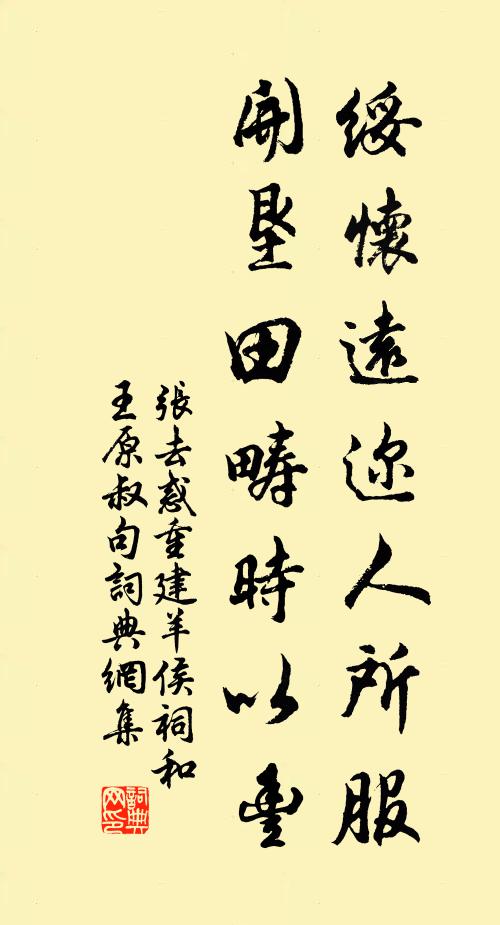 綏懷遠迩人所服
開墾田疇時以豐
張去惑重建羊侯祠和
王原叔句詞典網集
詞典网印